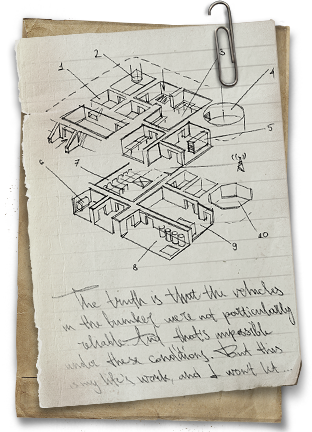 1
2
3
4
5
6
7
((·))
8
9
10
The truth is that the vehicles
in the bunker were not particularly
reliable but that's impossible
under these conditions. But this
is my life's work, and I won't let...